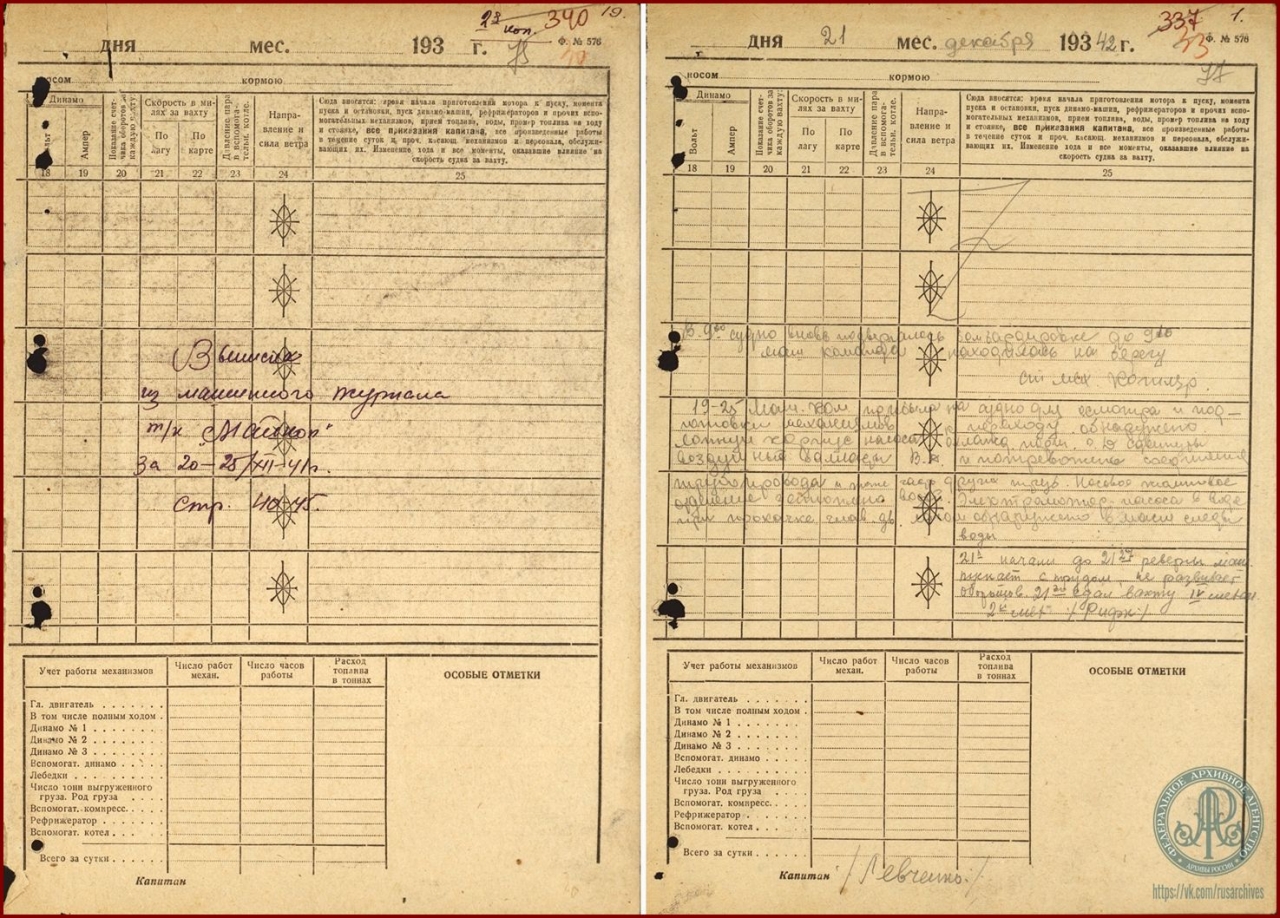 23 390 19.
коп.
дня мес. 193 г. Ф. № 576
75
носом кормою
Динамо
Вольт
Ампер
Показание счет-
чика оборотов за
каждую вахту
Скорость в ми-
лях за вахту
По
лагу
По
карте
Давление пара
в вспомога-
тельн. котле.
Напра-
вление и
сила ветра
Сюда вносятся: время начала приготовления мотора к пуску, момента
пуска и остановки, пуск динамо-машин, рефрижераторов и прочих вспо-
могательных механизмов, прием топлива, воды, промер топлива на ходу
и стоянке, все приказания капитана, все произведенные работы
в течение суток и, проч. касающ. механизмов и персонала, обслужи-
вающих их. Изменение хода и все моменты, оказавшие влияние на
скорость судна за вахту.
18 19 20 21 22 23 24 25
Выписка
из машинного журнала
т/х „Майкоп"
За 20–25/XII-41г.
стр. 40-45.
Учет работы механизмов
Число работ
механ.
Число часов
работы
Расход
топлива
в тоннах
ОСОБЫЕ ОТМЕТКИ
Гл. двигатель . . . . . . .
В том числе полным ходом .
Динамо № 1 . . . . . . .
Динамо № 2 . . . . . . .
Динамо № 3 . . . . . . .
Вспомогат. динамо . . . .
Лебедки . . . . . . . .
Число тонн выгруженного
груза. Род груза . . . .
Вспомогат. компресс. . . .
Рефрижератор . . . . . .
Вспомогат. котел . . . . .
Всего за сутки . . . .
Капитан
337 1.
43
дня 21 мес. декабря 193 42 г. Ф. № 576
77
носом кормою
Динамо
Вольт
Ампер
Показание счет-
чика оборотов за
каждую вахту
Скорость в ми-
лях за вахту
По
лагу
По
карте
Давление пара
в вспомога-
тельн. котле.
Напра-
вление и
сила ветра
Сюда вносятся: время начала приготовления мотора к пуску, момента
пуска и остановки, пуск динамо-машин, рефрижераторов и прочих вспо-
могательных механизмов, прием топлива, воды, промер топлива на ходу
и стоянке, все приказания капитана, все произведенные работы
в течение суток и, проч. касающ. механизмов и персонала, обслужи-
вающих их. Изменение хода и все моменты, оказавшие влияние на
скорость судна за вахту.
18 19 20 21 22 23 24 25
В 9 судно вновь подвергалось бомбардировке до 9
маш команда находилась на берегу
ст мех Котляр.
19-25 Маш. ком прибыла на судно для осмотра и под-
готовки механизмов к переходу обнаружено
корпус насоса охлажд
воздушный и потревожены соединения
трубопровода и других труб. Носовое
воды. Электромотор насоса в воде
при прокачке глав. дв. обнаружено в масле следы
воды
21 начали до 21 реверсы маш
пускает с трудом, не развивает
оборотов. 21 сдал вахту IV механ.
2й мех /Рифк/
Учет работы механизмов
Число работ
механ.
Число часов
работы
Расход
топлива
в тоннах
ОСОБЫЕ ОТМЕТКИ
Гл. двигатель . . . . . . .
В том числе полным ходом .
Динамо № 1 . . . . . . .
Динамо № 2 . . . . . . .
Динамо № 3 . . . . . . .
Вспомогат. динамо . . . .
Лебедки . . . . . . . .
Число тонн выгруженного
груза. Род груза . . . .
Вспомогат. компресс. . . .
Рефрижератор . . . . . .
Вспомогат. котел . . . . .
Всего за сутки . . . .
Капитан /Левченко/
ФЕДЕРАЛЬНОЕ АРХИВНОЕ АГЕНТСТВО
АРХИВЫ РОССИИ
https://vk.com/rusarchives